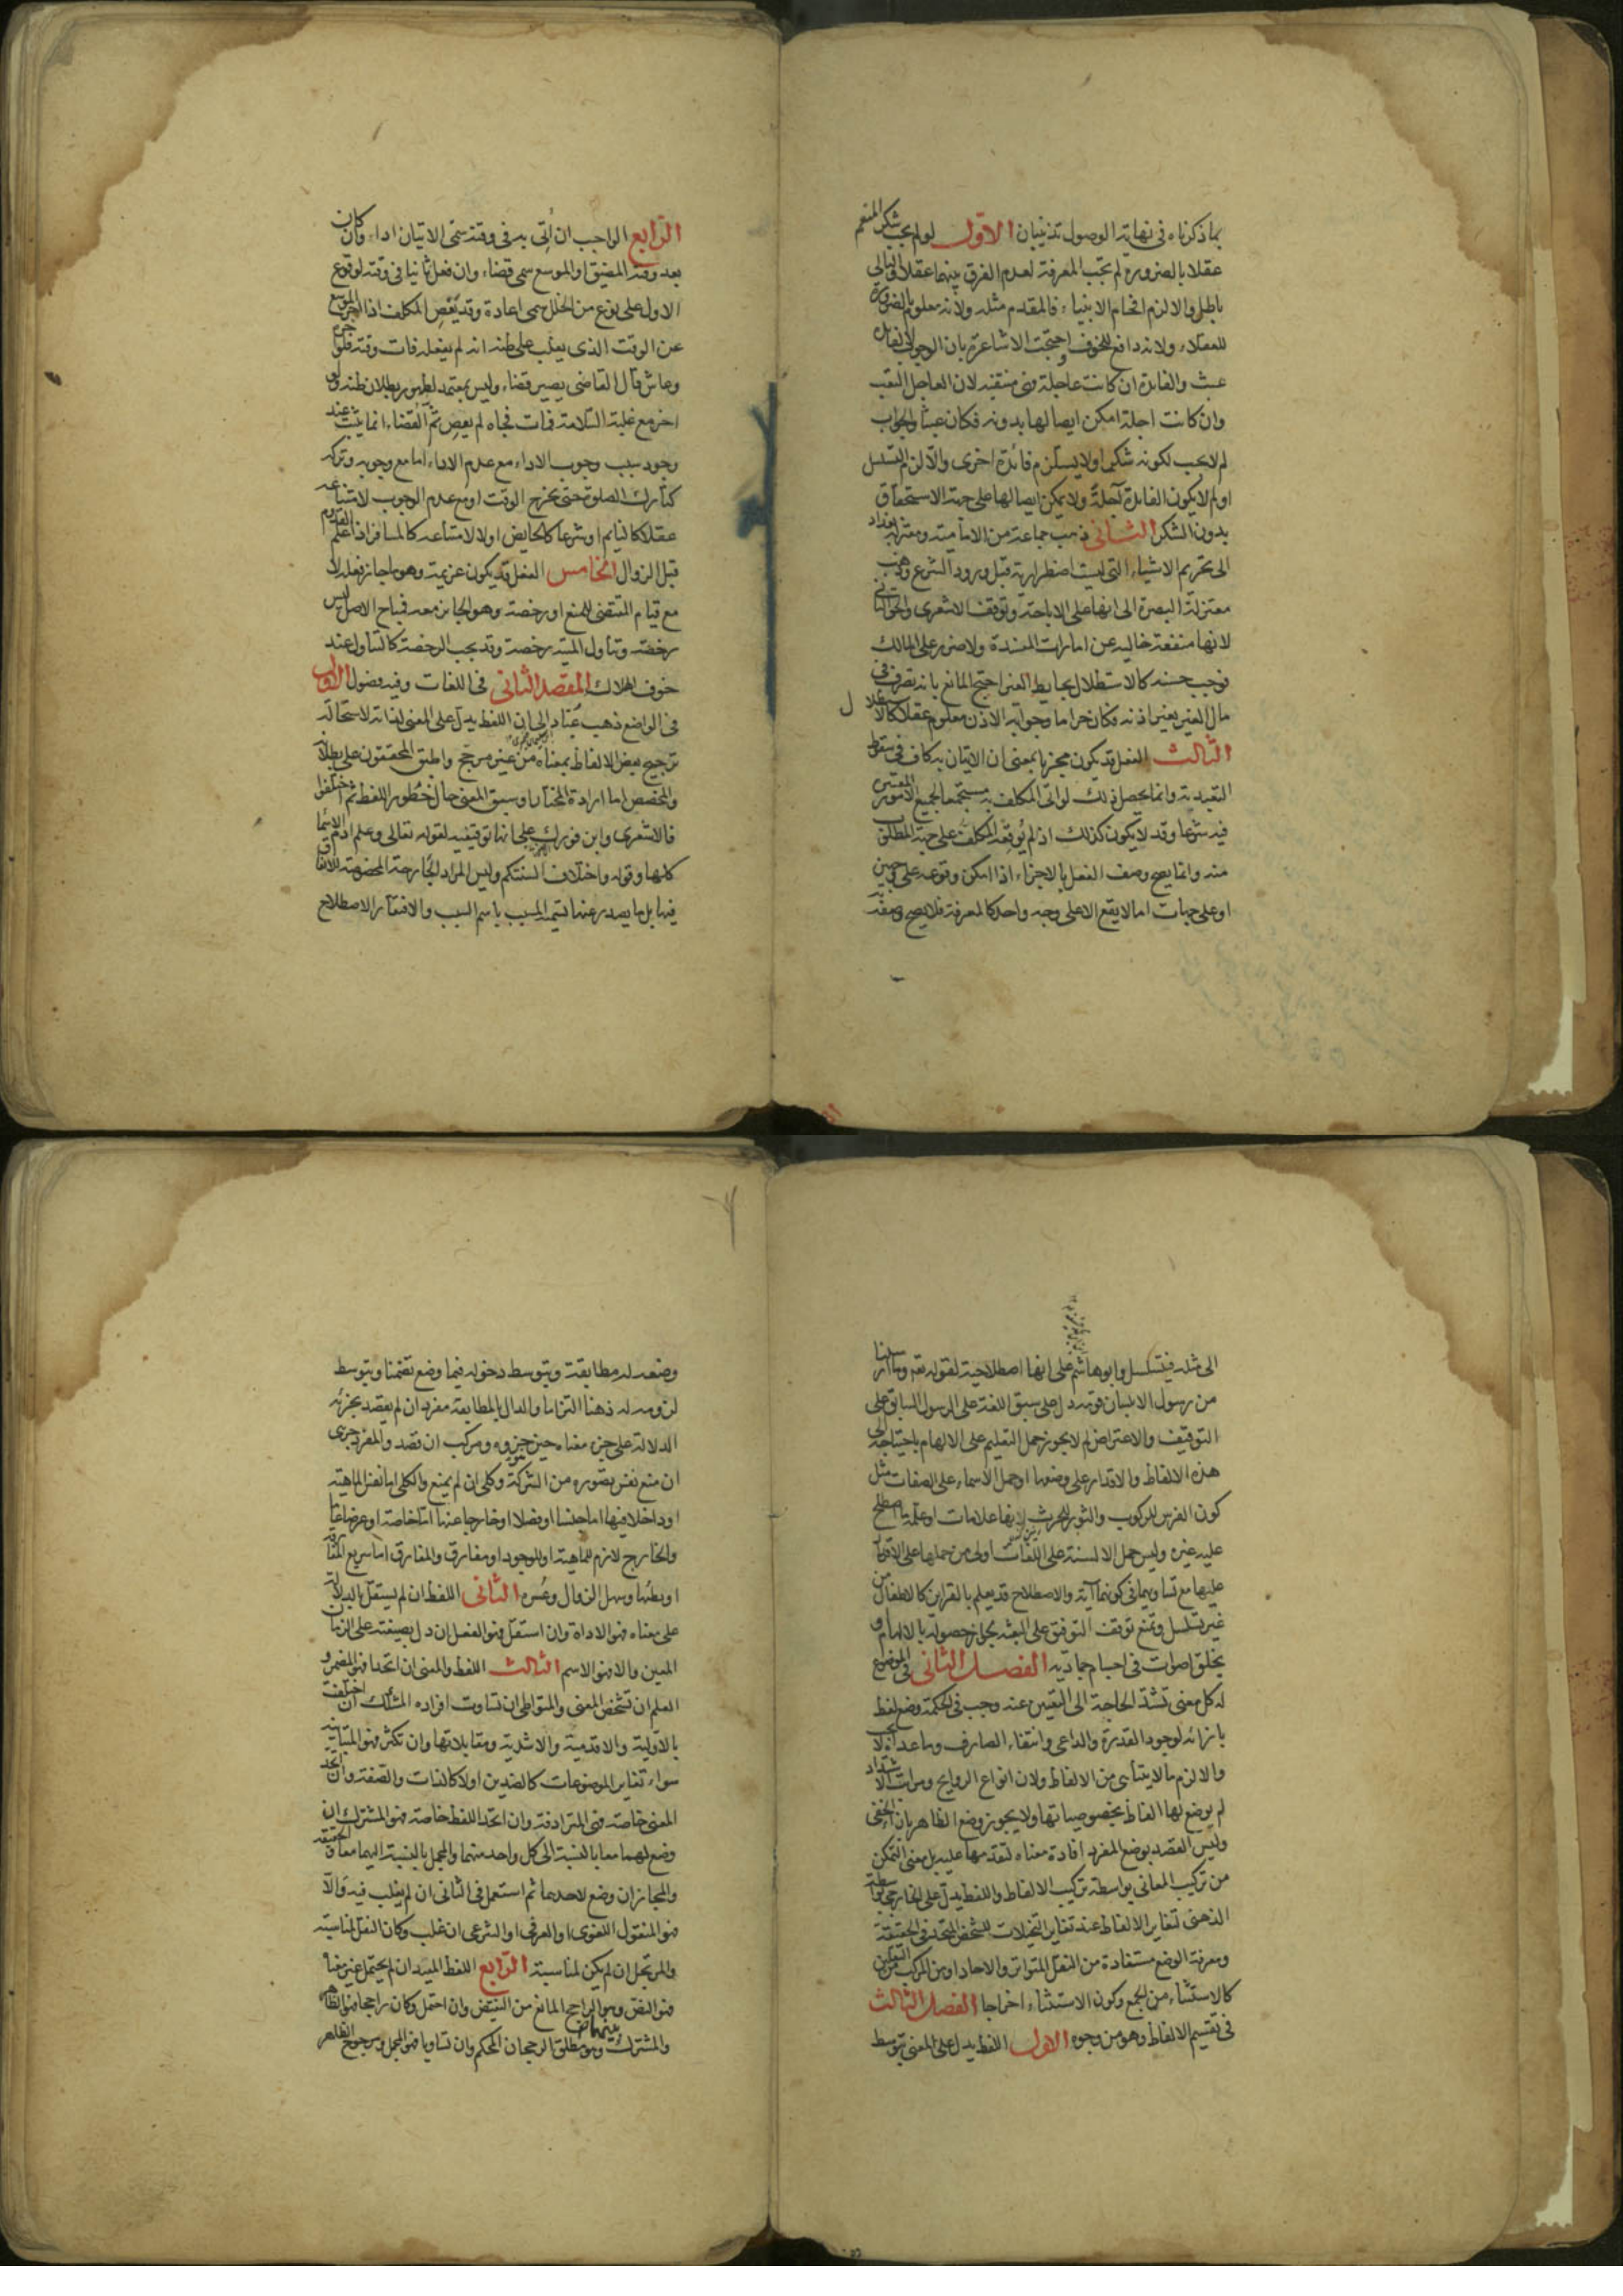 بما ذكرناه في نهاية الوصول تذنيبان الاول لو لم يجب شكر المنعم
عقلا بالضرورة لم تجب المعرفة لعدم الفرق بينهما عقلا والتالي
باطل والا لزم افحام الانبياء فالمقدم مثله ولانه معلوم بالضرورة
للعقلاء ولانه دافع للخوف احتجت الاشاعرة بان الوجوب لا لفائدة
عبث والفائدة ان كانت عاجلة فهي منتفية لان العاجل التعب
وان كانت اجلة امكن ايصالها بدونه فكان عبثا والجواب
لم لا يجب لكونه شكرا ولا يستلزم فائدة اخرى والا لزم التسلسل
او لم لا يكون الفائدة آجلة ولا يمكن ايصالها على جهة الاستحقاق
بدون الشكر الثاني ذهب جماعة من الامامية ومعتزلة بغداد
الى تحريم الاشياء التي ليست اضطرارية قبل ورود الشرع وذهب
معتزلة البصرة الى انها على الاباحة وتوقف الاشعرى والحق الثاني
لانها منفعة خالية عن امارات المفسدة ولا ضرر على المالك
فوجب حسنه كالاستظلال بحايط الغير احتج المانع بانه تصرف في
مال الغير بغير اذنه فكان حراما وجوابه الاذن معلوم عقلا كالاستظلال
الثالث الفعل قد يكون مجزيا بمعنى ان الاتيان به كاف في سقوط
التعبد به وانما يحصل ذلك لو اتى المكلف به مستجمعا لجميع الامور المعتبرة
فيه شرعا وقد لا يكون كذلك اذ لم يوقعه المكلف على جهة المطلوب
منه وانما يصح وصف الفعل بالاجزاء اذا امكن وقوعه على جهتين
او على جهات اما لا يقع الا على وجه واحد كالمعرفة فلا يصح وصفه
الرابع الواجب ان اتي به في وقته سمي الاتيان اداء وان كان
بعد وقته المضيق او الموسع سمي قضاء وان فعل ثانيا في وقته لوقوع
الاول على نوع من الخلل سمي اعادة وقد يعصي المكلف اذا اخر الموسع
عن الوقت الذي يغلب على ظنه انه لم يفعله فات وقته فلو اخر
وعاش قال القاضي يصير قضاء وليس بمعتمد لظهور بطلان ظنه ولو
اخر مع غلبة السلامة فمات فجاه لم يعص ثم القضاء انما يثبت عند
وجود سبب وجوب الاداء مع عدم الاداء اما مع وجوبه وتركه
كتارك الصلوة حتى يخرج الوقت او مع عدم الوجوب لامتناعه
عقلا كالنايم او شرعا كالحايض اولا لامتناعه كالمسافر اذا علم القدوم
قبل الزوال الخامس الفعل قد يكون عزيمة وهو ما جاز فعله لا
مع قيام المقتضى للمنع او رخصة وهو الجائز معه فمباح الاصل ليس
رخصة وتناول الميتة رخصة وقد يجب الرخصة كالتناول عند
خوف الهلاك المقصد الثاني في اللغات وفيه فصول الاول
في الواضع ذهب عباد الى ان اللفظ يدل على المعنى لذاته لاستحالة
ترجيح بعض الالفاظ بمعناه من غير مرجح واطبق المحققون على بطلانه
والمخصص اما ارادة المختار او سبق المعنى حال خطور اللفظ ثم اختلفوا
فالاشعرى وابن فورك على انها توقيفية لقوله تعالى وعلم ادم الاسما
كلها وقوله واختلاف السنتكم وليس المراد الجارحة المخصوصة للاتفاق
فيها بل ما يصدر عنها تسمية المسبب باسم السبب ولافتقار الاصطلاح
الى مثله فيتسلسل وابو هاشم على انها اصطلاحية لقوله تع وما ارسلنا
من رسول الا بلسان قومه دل على سبق اللغة على الرسول السابق على
التوقيف والاعتراض لم لا يجوز حمل التعليم على الالهام باحتياجه الى
هذه الالفاظ والاقدار على وضعها او حمل الاسماء على الصفات مثل
كون الفرس للركوب والثور للحرث لانها علامات او علمه ما اصطلح
عليه غيره وليس حمل الالسنة على اللغات اولى من حملها على الاقدار
عليها مع تساويهما في كونهما آية والاصطلاح قد يعلم بالقراين كالاطفال من
غير تسلسل وتمنع توقف التوقيف على البعثة لجواز حصوله بالالهام او
بخلق اصوات في اجسام جمادية الفصل الثاني في الموضوع
له كل معنى تشتد الحاجة الى التعبير عنه وجب في الحكمة وضع لفظ
بازائه لوجود القدرة والداعي وانتفاء الصارف وما عداه لا يجب
والا لزم ما لا يتناهى من الالفاظ ولان انواع الروايح ومراتب الاشتداد
لم يوضع لها الفاظ بخصوصياتها ولا يجوز وضع الظاهر بازاء الخفى
وليس القصد بوضع المفرد افادة معناه لتقدمها عليه بل معنى التمكن
من تركيب المعاني بواسطة تركيب الالفاظ واللفظ يدل على الخارجي بواسطة
الذهني لتغاير الالفاظ عند تغاير التخيلات للشخص المتحد في الحقيقة
ومعرفة الوضع مستفادة من النقل المتواتر والاحاد او من المركب من النقلين
كالاستثناء من الجمع وكون الاستثناء اخراجا الفصل الثالث
في تقسيم الالفاظ وهو من وجوه الاول اللفظ يدل على المعنى بتوسط
وضعه له مطابقة وبتوسط دخوله فيما وضع تضمنا وبتوسط
لزومه له ذهنا التزاما والدال بالمطابقة مفرد ان لم يقصد بجزئه
الدلالة على جزء معناه حين جزؤه ومركب ان قصد والمفرد جزى
ان منع نفس تصوره من الشركة وكلى ان لم يمنع والكلى اما نفس الماهية
او داخلا فيها اما جنسا او فصلا او خارجا عنها اما خاصة او عرضا عاما
والخارج لازم للماهية او للوجود او مفارق والمفارق اما سريع المفارقة
او بطئها وسهل الزوال وعسره الثاني اللفظ ان لم يستقل بالدلالة
على معناه فهو الاداة وان استقل فهو الفعل ان دل بصيغته على الزمان
المعين والا فهو الاسم الثالث اللفظ والمعنى ان اتحدا فهو المضمر و
العلم ان تشخص المعنى والمتواطى ان تساوت افراده المشكك ان اختلفت
بالاولية والاقدمية والاشدية ومقابلاتها وان تكثر فهو المتباينة
سواء تغاير الموضوعات كالضدين اولا كالذات والصفة وان اتحد
المعنى خاصة فهي المترادفة وان اتحد اللفظ خاصة فهو المشترك ان
وضع لهما معا بالنسبة الى كل واحد منهما والمجمل بالنسبة اليهما معا والحقيقة
والمجاز ان وضع لاحدهما ثم استعمل في الثاني ان لم يغلب فيه والا
فهو المنقول اللغوى او العرفي او الشرعي ان غلب وكان النقل لمناسبة
والمرتجل ان لم يكن لمناسبة الرابع اللفظ المفيد ان لم يحتمل غير معناه
فهو النص وهو الراجح المانع من النقيض وان احتمل وكان راجحا فهو الظاهر
والمشترك بينهما وهو مطلق الرجحان المحكم وان تساويا فهو المجمل ومرجوح الظاهر